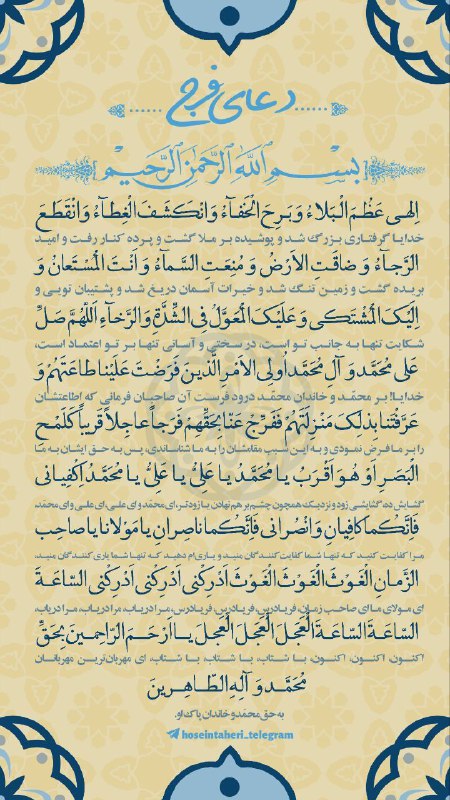 دعای فرج
بسم الله الرحمن الرحیم
اِلهی عَظُمَ الْبَلاءُ وَ بَرِحَ الْخَفآءُ وَ انْکَشَفَ الْغِطآءُ وَ انْقَطَعَ
خدایا گرفتاری بزرگ شد و پوشیده بر ملا گشت و پرده کنار رفت و امید
الرَّجآءُ وَ ضاقَتِ الْاَرْضُ وَ مُنِعَتِ السَّمآءُ وَ اَنْتَ الْمُسْتَعانُ وَ
بریده گشت و زمین تنگ شد و خیرات آسمان دریغ شد و پشتیبان تویی و
اِلَیْکَ الْمُشْتَکی وَ عَلَیْکَ الْمُعَوَّلُ فِی الشِّدَّةِ وَ الرَّخآءِ اَللّهُمَّ صَلِّ
شکایت تنها به جانب تو است، در سختی و آسانی تنها بر تو اعتماد است،
عَلی مُحَمَّدٍ وَ آلِ مُحَمَّدٍ اُولِی الْاَمْرِ الَّذینَ فَرَضْتَ عَلَیْنا طاعَتَهُمْ وَ
خدایا! بر محمّد و خاندان محمّد درود فرست آن صاحبان فرمانی که اطاعتشان
عَرَّفْتَنا بِذلِکَ مَنْزِلَتَهُمْ فَفَرِّجْ عَنّا بِحَقِّهِمْ فَرَجاً عاجِلاً قَریباً کَلَمْحِ
را بر ما فرض نمودی و به این سبب مقامشان را به ما شناساندی، پس به حق ایشان به ما
الْبَصَرِ اَوْ هُوَ اَقْرَبُ یا مُحَمَّدُ یا عَلِیُّ یا عَلِیُّ یا مُحَمَّدُ اِکْفِیانی
گشایش ده، گشایشی زود و نزدیک همچون چشم بر هم نهادن یا زودتر، ای محمّد و ای علی، ای علی و ای محمّد،
فَاِنَّکُما کافِیانِ وَ انْصُرانی فَاِنَّکُما ناصِرانِ یا مَوْلانا یا صاحِبَ
مرا کفایت کنید که تنها شما کفایت کنندگان منید و یاری ام دهید که تنها شما یاری کنندگان منید.
الزَّمانِ الْغَوْثَ الْغَوْثَ الْغَوْثَ اَدْرِکْنی اَدْرِکْنی اَدْرِکْنی السّاعَةَ
ای مولای ما ای صاحب زمان، فریادرس، فریادرس، فریادرس، مرا دریاب، مرا دریاب، مرا دریاب،
السّاعَةَ السّاعَةَ الْعَجَلَ الْعَجَلَ الْعَجَلَ یا اَرْحَمَ الرّاحِمینَ بِحَقِّ
اکنون، اکنون، اکنون، با شتاب، با شتاب، با شتاب، ای مهربان‌ترین مهربانان
مُحَمَّدٍ وَ آلِهِ الطّاهِرینَ
به حق محمّد و خاندان پاک او.
hoseintaheri_telegram